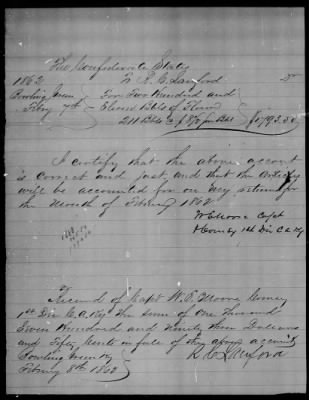 The Confederate States
1862 To R. C. Sanford Dr
Bowling Green For Two Hundred and
Feby 7th Eleven Bbls of Flour
211 Bbls @ $8.50 per Bbl $1793.50
I certify that the above account
is correct and just, and that the articles
will be accounted for on my return for
the Month of Feby 1862
W E Moore Capt
& Comsy 1st Div C A Ky
Received of Capt W. E. Moore Comsy
1st Div C. A. Ky the sum of One Thousand
Seven Hundred and Ninety three Dollars
and Fifty cents in full of the above account
Bowling Green Ky R. C. Sanford
Feby 8th 1862